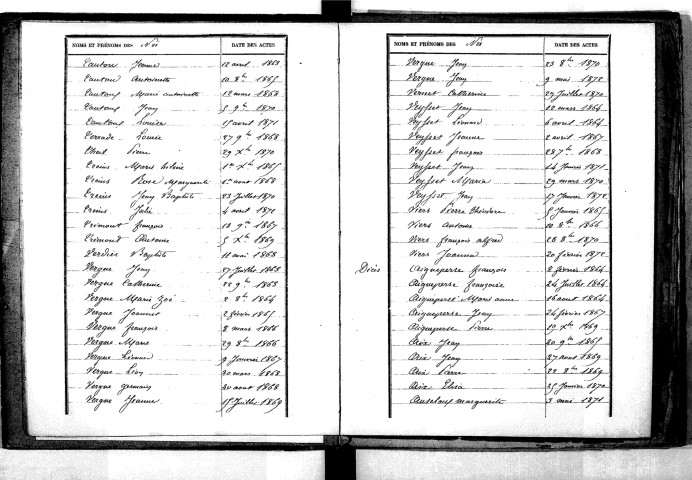 NOMS ET PRÉNOMS DES Nés DATE DES ACTES
Jeanne 12 avril 1863
Antoinette 10 8bre 1865
Marie antoinette 12 mars 1868
Jean 5 9bre 1870
Louise 15 avril 1871
Louise 27 9bre 1868
Pierre 29 Xbre 1870
Marie 1er Xbre 1865
Rose Marguerite 1er aout 1868
Jean Baptiste 23 Juillet 1870
Julie 4 avril 1872
françois 18 9bre 1867
Antoine 5 Xbre 1869
Verdier Baptiste 11 mai 1868
Vergne Jean 27 Juillet 1863
Vergne Catherine 22 9bre 1863
Vergne Marie Zoé 2 8bre 1864
Vergne Jeannet 2 février 1865
Vergne françois 8 mars 1866
Vergne Marie 29 8bre 1866
Vergne Léonard 9 Janvier 1867
Vergne Léon 30 mars 1868
Vergne germain 30 aout 1868
Vergne Jeanne 15 Juillet 1869
NOMS ET PRÉNOMS DES Nés DATE DES ACTES
Vergne Jean 23 8bre 1870
Vergne Jean 9 mai 1872
Vernet Catherine 29 Juillet 1870
Veysset Jean 12 mars 1864
Veysset Léonard 6 avril 1864
Veysset Jeanne 2 avril 1867
Veysset françois 28 7bre 1868
Veysset Jean 14 Janvier 1871
Veysset Maria 29 mars 1870
Veysset Jean 17 Janvier 1872
Viers Pierre Théodore 5 Janvier 1865
Viers Antoine 10 8bre 1866
Viers françois alfred 28 8bre 1870
Viers Jeanne 20 février 1872
Décès Aigueperse françois 2 février 1864
Aigueperse françoise 24 Juillet 1864
Aigueperse Marie anne 16 aout 1864
Aigueperse Jean 24 février 1867
Aigueperse Pierre 19 Xbre 1869
Aix Jean 20 9bre 1865
Aix Jean 27 aout 1869
Aix Pierre 22 8bre 1869
Aix Elisa 25 Janvier 1870
marguerite 3 mai 1871